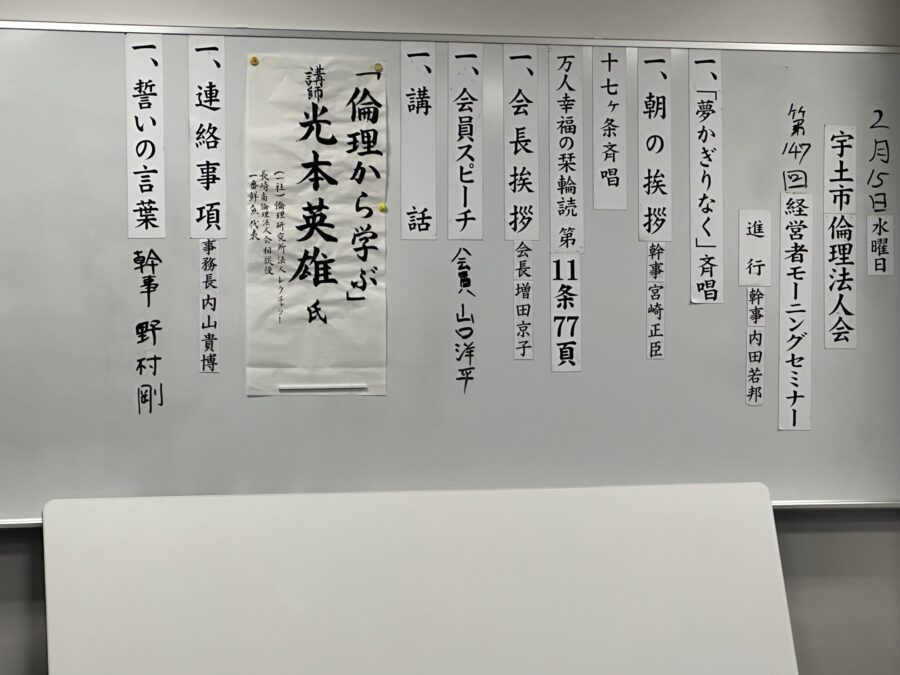 2月15日水曜日
宇土市倫理法人会
第147回経営者モーニングセミナー
進行 幹事内田若邦
一、「夢かぎりなく」斉唱
一、朝の挨拶 幹事宮崎正臣
十七ヶ条斉唱
万人幸福の栞輪読 第11条77頁
一、会長挨拶 会長増田京子
一、会員スピーチ 会員山口洋平
一、講話
「倫理から学ぶ」
講師 光本英雄氏
(一社)倫理研究所法人レクチャラー
長崎南倫理法人会相談役
一番鮮魚代表
一、連絡事項 事務長内山貴博
一、誓いの言葉 幹事 野村剛